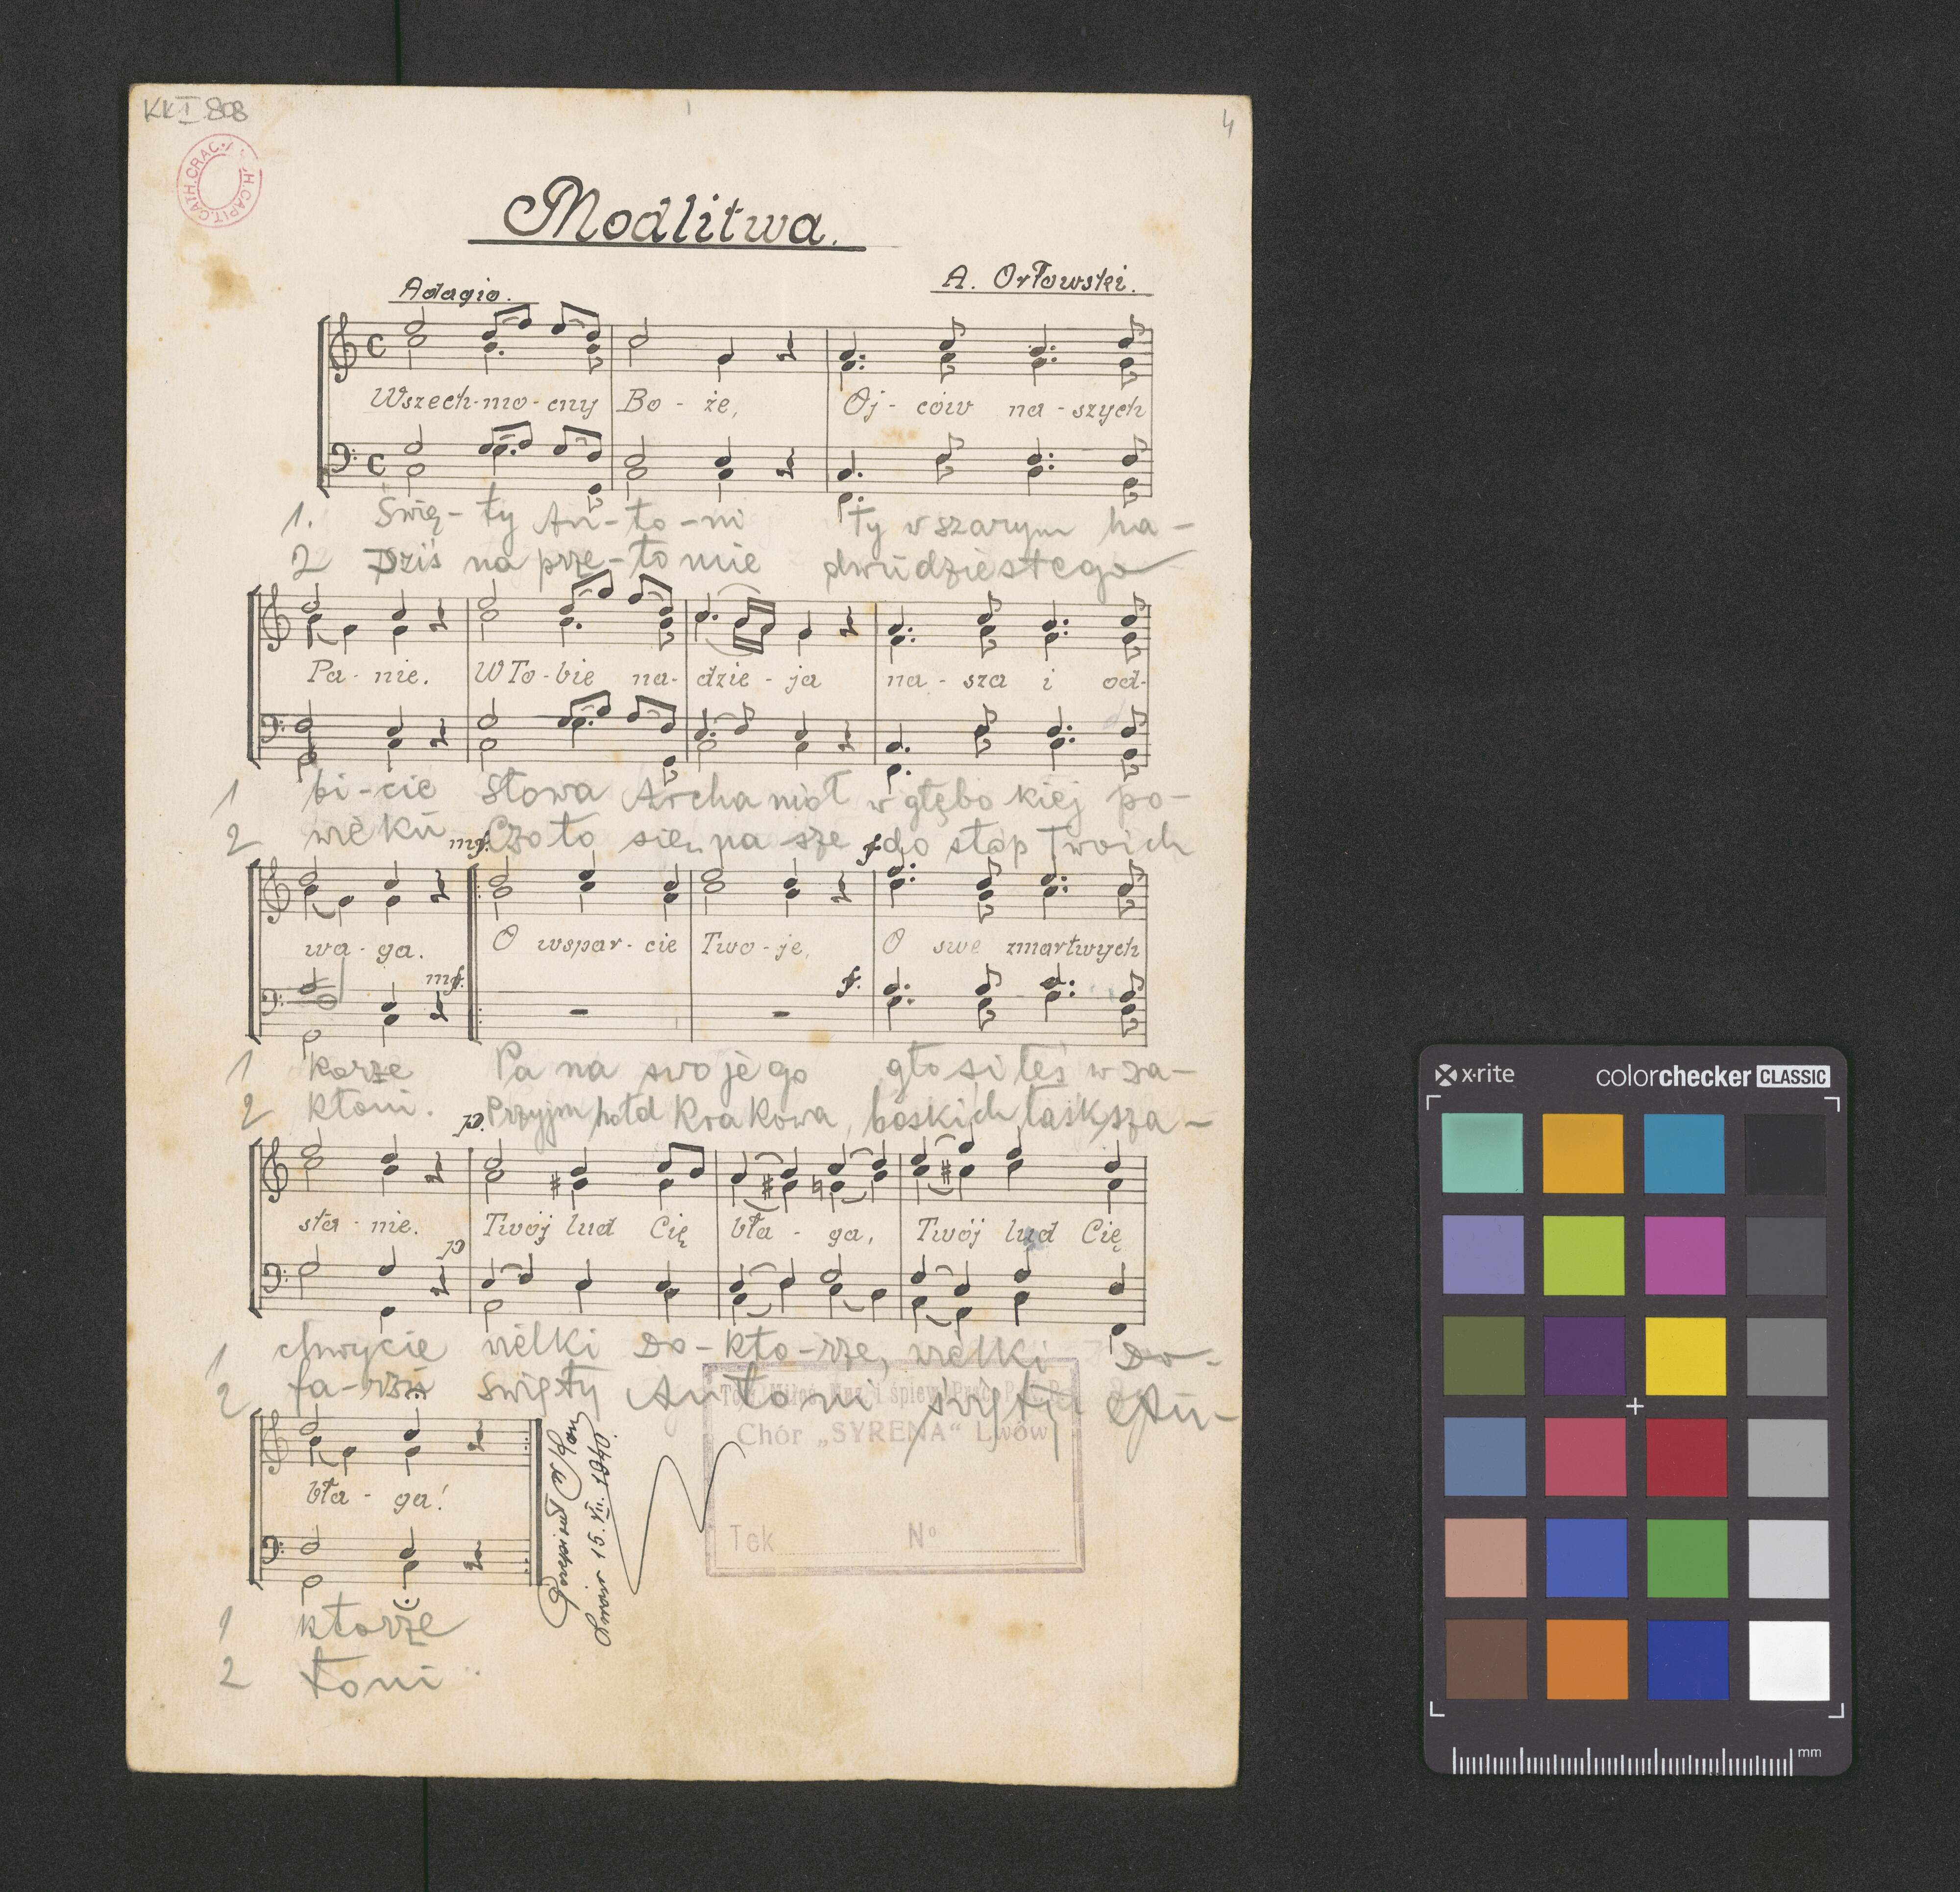 KK I 808
4
Modlitwa.
Adagio.
A. Orłowski.
Wszech-mo-cny Bo-że, Oj-ców na-szych
1.Świę-ty An-to-ni Ty w szarym ha-
2 Dziś na prze-łomie dwudziestego
Pa-nie. W To-bie na-dzie-ja na-sza i od-
1 bi-cie słowa Archanioł w głębokiej po-
2 wieku Czoło się nasze do stóp Twoich
mf. f.
wa-ga. O wspar-cie Two-je, O swe zmartwych
mf. f.
1 korze Pana swojego głosiłeś w za-
2 kłoni. Przyjm hołd Krakowa, boskich łask sza-
p.
sta-nie. Twój lud Cię bła-ga, Twój lud Cię
p
1 chwycie wielki Do-kto-rze, wielki Do-
2 fa-rzu święty Antoni święty An-
bła-ga!
Lwów 15. VII. 1940.
Chór „SYRENA" Lwów
Tek No
1 ktorze
2 toni
x·rite colorchecker CLASSIC
mm